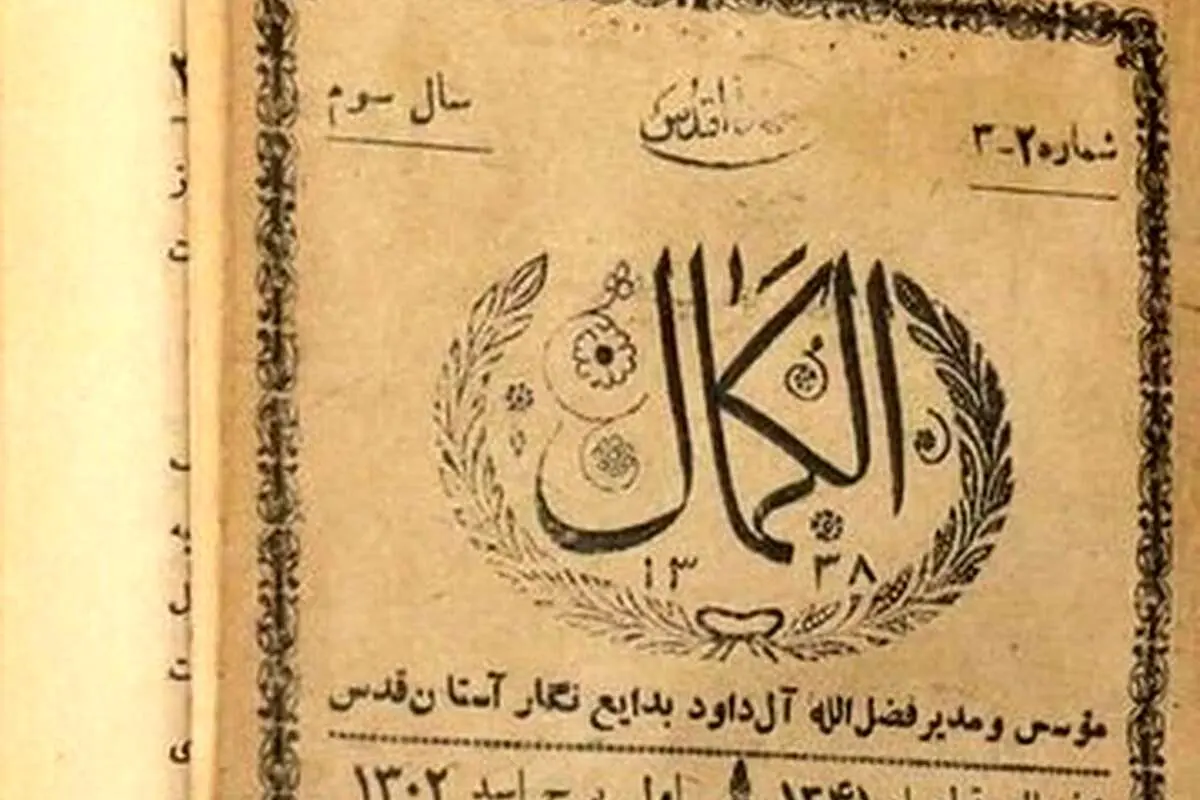 شماره ۲-۳
اقدس
سال سوم
الکمال
۱۳ ۳۸
مؤسس و مدیر فضل الله آل داود بدایع نگار آستان قدس
۱۳۴۱ اول برج اسد ۱۳۰۲